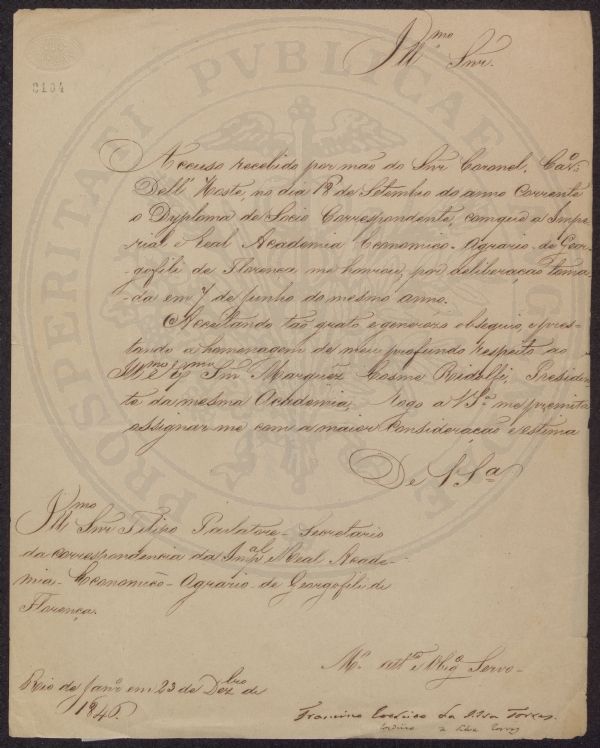 Illmo Snr.
8104
Accuso recebido por mão do Snr Coronel, Caro
Dell' Hoste, no dia 12 de Setembro do anno corrente
o Dyploma de Socio Correspondente, com que a Impe-
rial e Real Academia Economico-Agrario de Geor-
-gofili de Florença me honrou, por deliberação toma-
-da em 7 de Junho do mesmo anno.
Acceitando tão grato e generozo obsequio, e pres-
tando a homenagem de meu profundo respeito ao
Illmo e Exmo Snr Marquez Cosme Ridolfi, Presiden-
te da mesma Academia, rogo a VSa me premita
assignar me com a maior consideração e estima
De VSa
Illmo Snr Filipo Parlatore - Secretario
da correspondencia da Impal e Real Acade-
mia - Economico - Agrario de Georgofili de
Florença.
Mo atto e Obrgo Servo -
Rio de Janro em 23 de Dezbro de
1846.
Francisco da Silva Torres
PROSPERITATI PVBLICAE